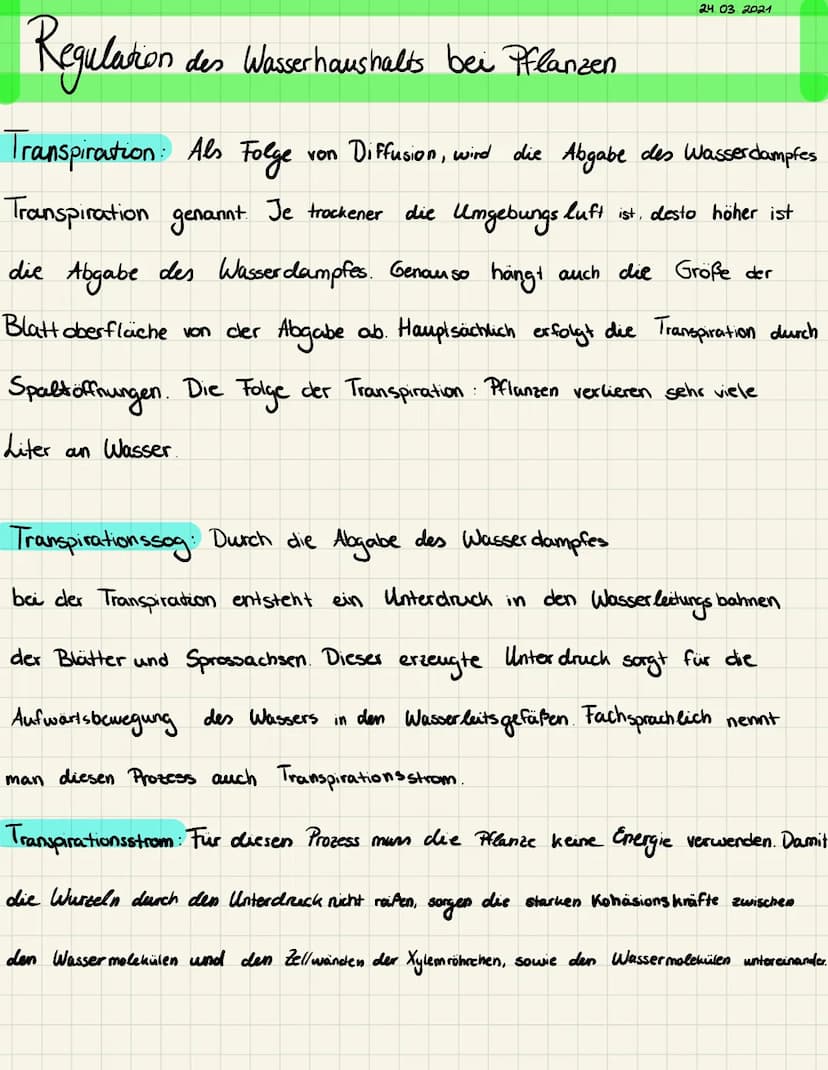 24 03 2021
Regulation des Wasserhaushalts bei Pflanzen
Transpiration: Als Folge von Diffusion, wird die Abgabe des Wasserdampfes
Transpiration genannt. Je trockener die Umgebungsluft ist, desto höher ist
die Abgabe des Wasserdampfes. Genauso hängt auch die Größe der
Blattoberfläche von der Abgabe ab. Hauptsächlich erfolgt die Transpiration durch
Spaltöffnungen. Die Folge der Transpiration: Pflanzen verlieren sehr viele
Liter an Wasser.
Transpirationssog: Durch die Abgabe des Wasserdampfes
bei der Transpiration entsteht ein Unterdruck in den Wasserleitungsbahnen
der Blätter und Sprossachsen. Dieses erzeugte Unterdruck sorgt für die
Aufwärtsbewegung des Wassers in den Wasserleitsgefäßen. Fachsprachlich nennt
man diesen Prozess auch Transpirationsstrom.
Transpirationsstrom: Für diesen Prozess muss die Pflanze keine Energie verwenden. Damit
die Wurzeln durch den Unterdruck nicht reißen, sorgen die starken Kohäsionskräfte zwischen
den Wassermolekülen und den Zellwänden der Xylemröhrchen, sowie den Wassermolekülen untereinander.